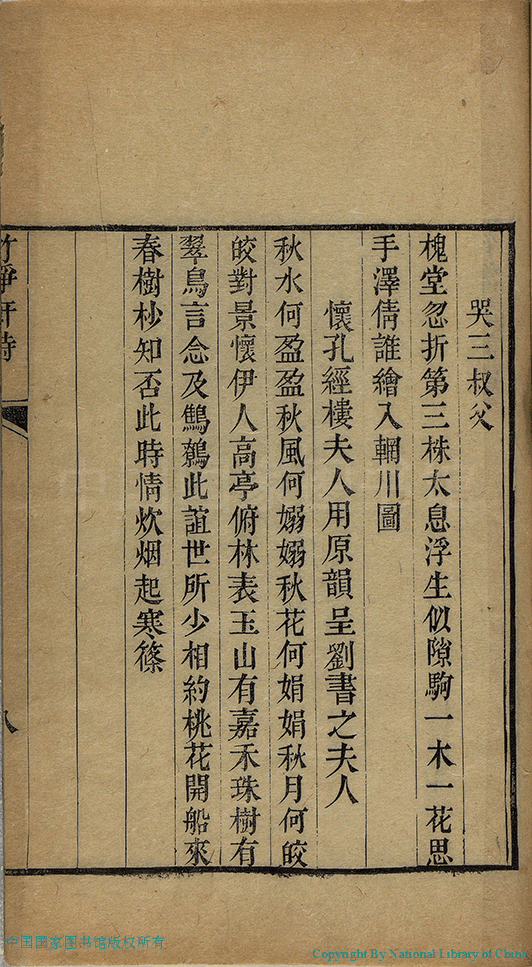 哭三叔父
槐堂忽折第三株太息浮生似隙駒一木一花思
手澤倩誰繪入輞川圖
懷孔經樓夫人用原韻呈劉書之夫人
秋水何盈盈秋風何嫋嫋秋花何娟娟秋月何皎
皎對景懷伊人高亭俯林表玉山有嘉禾珠樹有
翠鳥言念及鷦鷯此誼世所少相約桃花開船來
春樹杪知否此時情炊烟起寒篠
竹淨軒詩
八
中国国家图书馆版权所有
Copyright By National Library of China